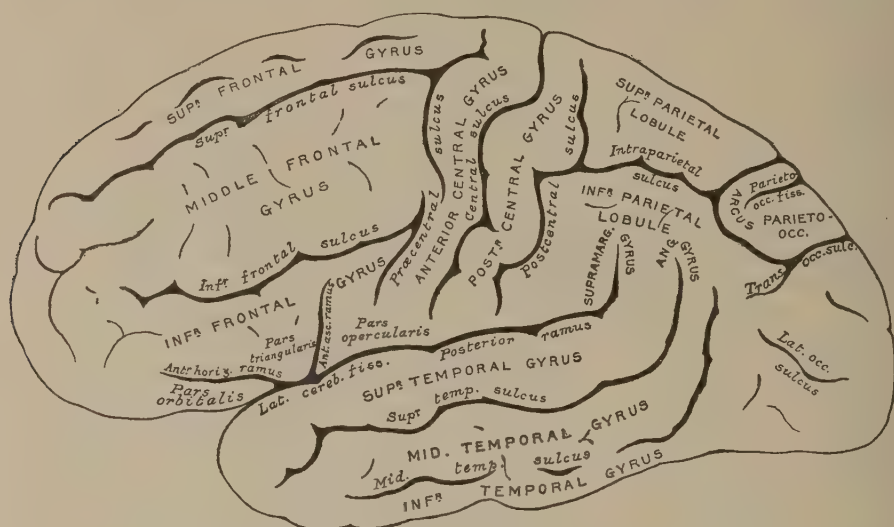 SUPR. FRONTAL GYRUS
Supr. frontal sulcus
MIDDLE FRONTAL
GYRUS
Infr. frontal sulcus
INFR. FRONTAL GYRUS
Pars
triangularis
Ant. asc. ramus
Pars
opercularis
Antr. horiz. ramus
Pars
orbitalis
Præcentral sulcus
ANTERIOR CENTRAL GYRUS
Central sulcus
POSTR. CENTRAL GYRUS
Postcentral sulcus
SUPR. PARIETAL
LOBULE
Intraparietal
sulcus
INFR. PARIETAL
LOBULE
SUPRAMARG.
GYRUS
ANG. GYRUS
ARCUS
Parieto-
occ. fiss.
PARIETO-
OCC.
Trans. occ. sulc.
Lat. occ.
sulcus
Lat. cereb. fiss. Posterior ramus
SUPR. TEMPORAL GYRUS
Supr. temp. sulcus
MID. TEMPORAL GYRUS
Mid. temp. sulcus
INFR. TEMPORAL GYRUS